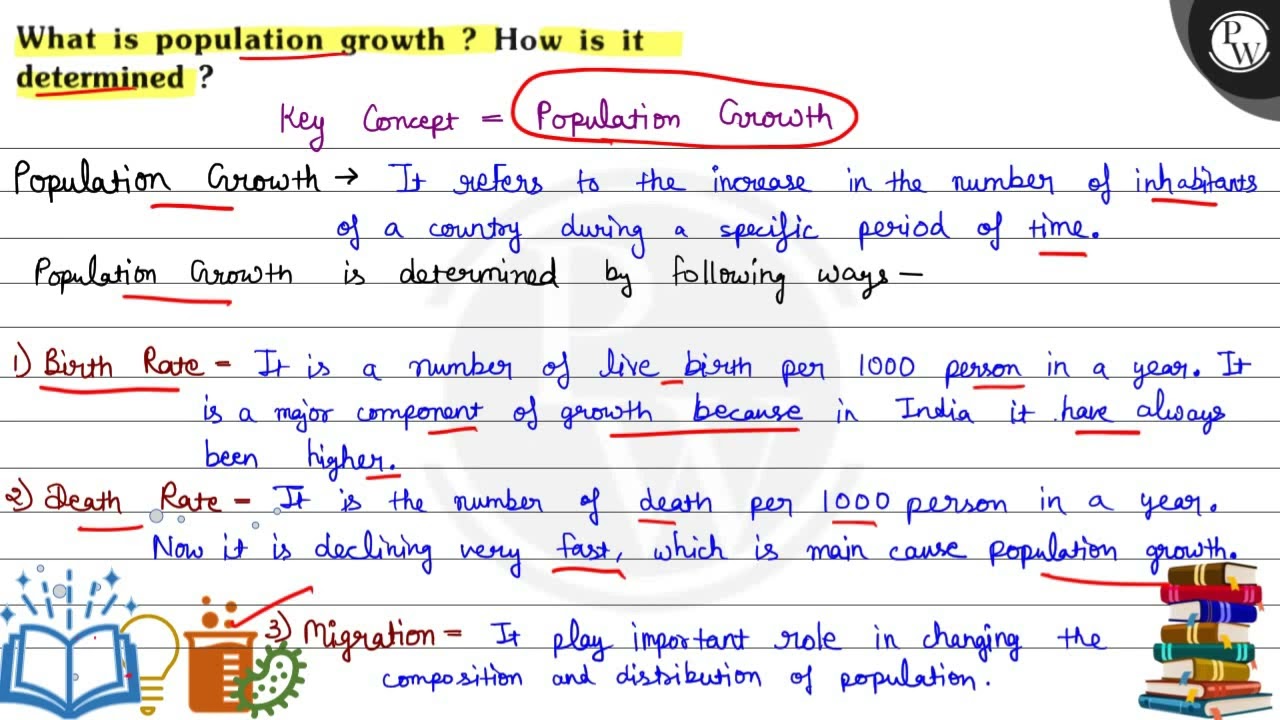 What is population growth ? How is it
determined ?
PW
Key Concept = Population Growth
Population Growth → It refers to the increase in the number of inhabitants
of a country during a specific period of time.
Population Growth is determined by following ways –
1) Birth Rate - It is a number of live birth per 1000 person in a year. It
is a major component of growth because in India it have always
been higher.
2) Death Rate - It is the number of death per 1000 person in a year.
Now it is declining very fast, which is main cause population growth.
3) Migration = It play important role in changing the
composition and distribution of population.